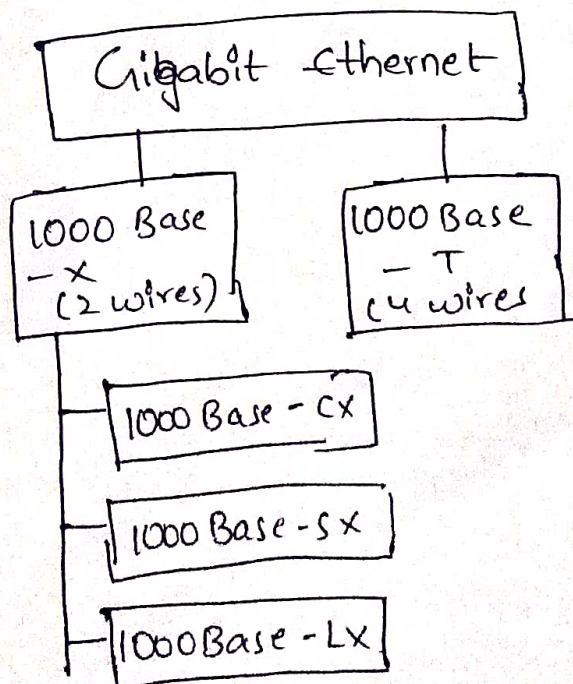 Gigabit Ethernet
1000 Base
- X
(2 wires)
1000 Base
- T
(4 wires
1000 Base - CX
1000 Base - SX
1000 Base - LX